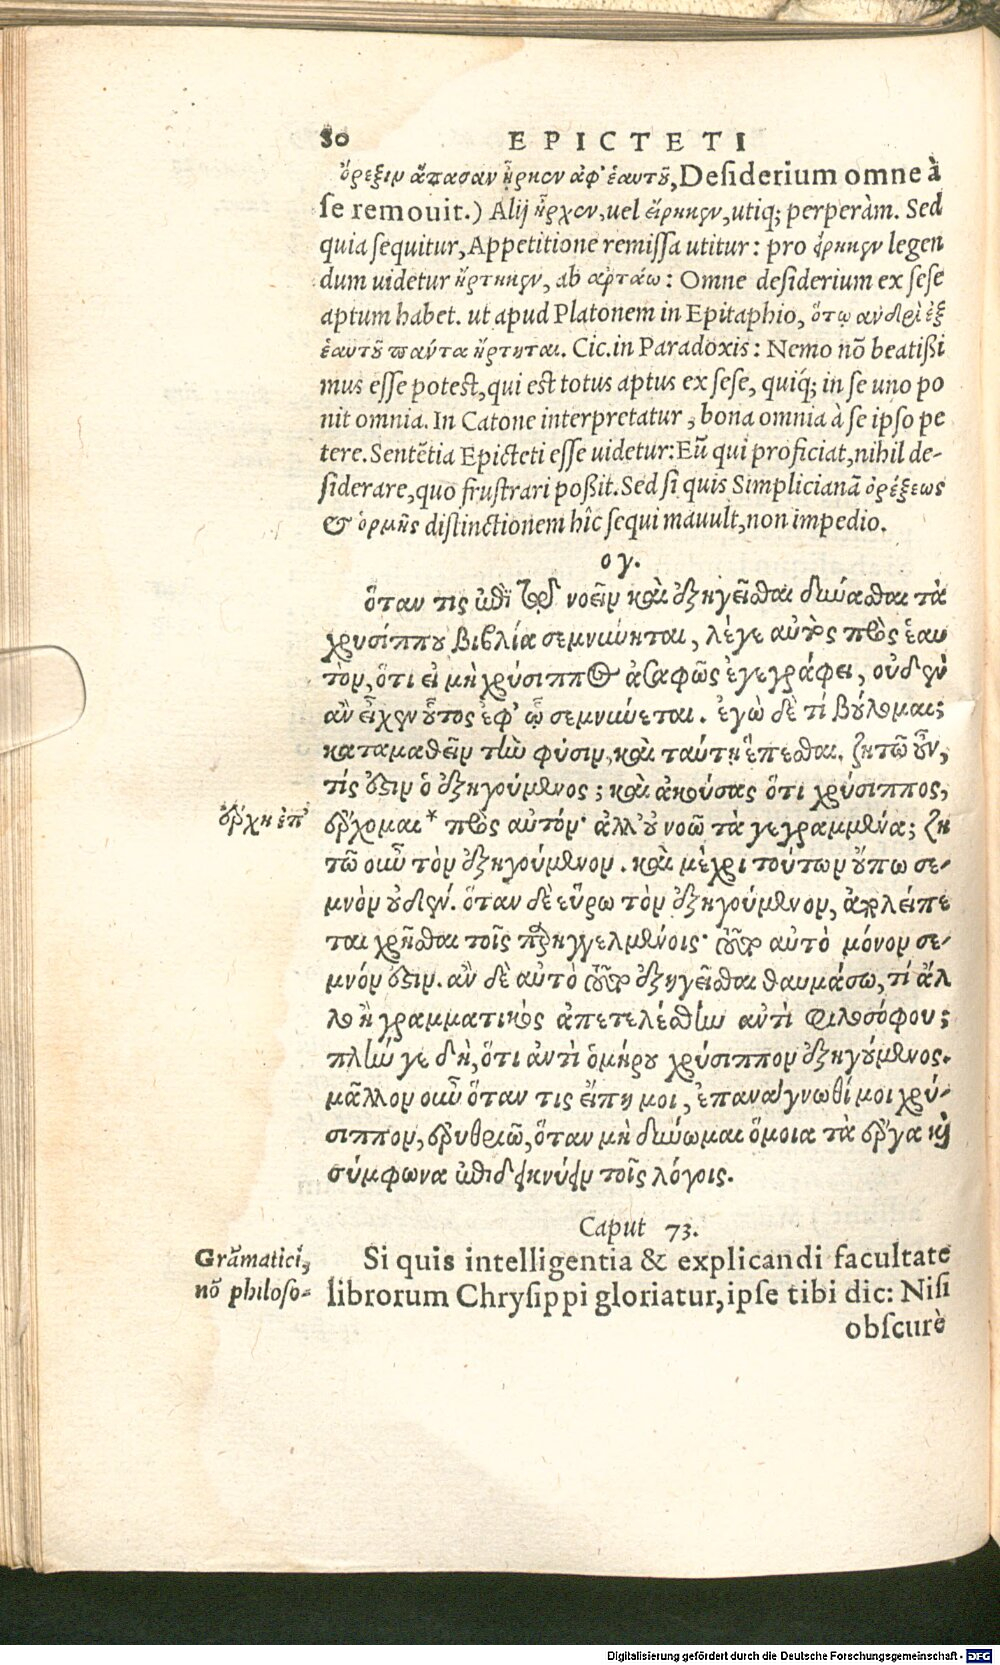 80 EPICTETI
ὄρεξιν ἅπασαν ἦρκεν ἀφ' ἑαυτοῦ, Desiderium omne à
se remouit.) Alij ἦρχεν, uel εἴρηκεν, utiq; perperàm. Sed
quia sequitur, Appetitione remissa utitur: pro legen
dum uidetur ἤρτηκεν, ab αρτάω: Omne desiderium ex sese
aptum habet. ut apud Platonem in Epitaphio, ὅτῳ ανδρὶ ἐξ
ἑαυτοῦ παντα ἤρτηται. Cic. in Paradoxis: Nemo nõ beatißi
mus esse potest, qui est totus aptus ex sese, quiq́; in se uno po
nit omnia. In Catone interpretatur, bona omnia à se ipso pe
tere. Sentẽtia Epicteti esse uidetur: Eũ qui proficiat, nihil de-
siderare, quo frustrari poßit. Sed si quis Simplicianã ὀρέξεως
& ὁρμῆς distinctionem hîc sequi mauult, non impedio.
ογ.
ὅταν τις ἐπὶ τῷ νοεῖν καὶ ἐξηγεῖσθαι δύνασθαι τὰ
χρυσίππου βιβλία σεμνύνηται, λέγε αὐτὸς πρὸς ἑαυ
τὸν, ὅτι εἰ μὴ χρύσιππος ἀσαφῶς ἐγεγράφει, οὐδὲν
ἂν εἶχεν οὗτος ἐφ' ᾧ σεμνύνεται. ἐγὼ δὲ τί βούλομαι;
καταμαθεῖν τὴν φύσιν, καὶ ταύτῃ ἕπεσθαι. ζητῶ οὖν,
τίς ἐστιν ὁ ἐξηγούμενος; καὶ ἀκούσας ὅτι χρύσιππος,
ἔρχῃ ἐπ'
ἔρχομαι* πρὸς αὐτόν· ἀλλ' οὐ νοῶ τὰ γεγραμμένα; ζη
τῶ οὖν τὸν ἐξηγούμενον. καὶ μέχρι τούτων οὔπω σε-
μνὸν οὐδέν. ὅταν δὲ εὕρω τὸν ἐξηγούμενον, ἀπολείπε
ται χρῆσθαι τοῖς παρηγγελμένοις· τοῦτο αὐτὸ μόνον σε-
μνόν ἐστιν. ἂν δὲ αὐτὸ τοῦτο ἐξηγεῖσθαι θαυμάσω, τί ἄλ
λο ἢ γραμματικὸς ἀπετελέσθην αντὶ φιλοσόφου;
πλὴν γε δὴ, ὅτι ἀντὶ ὁμήρου χρύσιππον ἐξηγούμενος.
μᾶλλον οὖν ὅταν τις εἴπῃ μοι, ἐπανάγνωθί μοι χρύ-
σιππον, ἐρυθριῶ, ὅταν μὴ δύνωμαι ὅμοια τὰ ἔργα καὶ
σύμφωνα ἐπιδεικνύειν τοῖς λόγοις.
Caput 73.
Grãmatici,
nõ philoso-
Si quis intelligentia & explicandi facultate
librorum Chrysippi gloriatur, ipse tibi dic: Nisi
obscurè
Digitalisierung gefördert durch die Deutsche Forschungsgemeinschaft - DFG